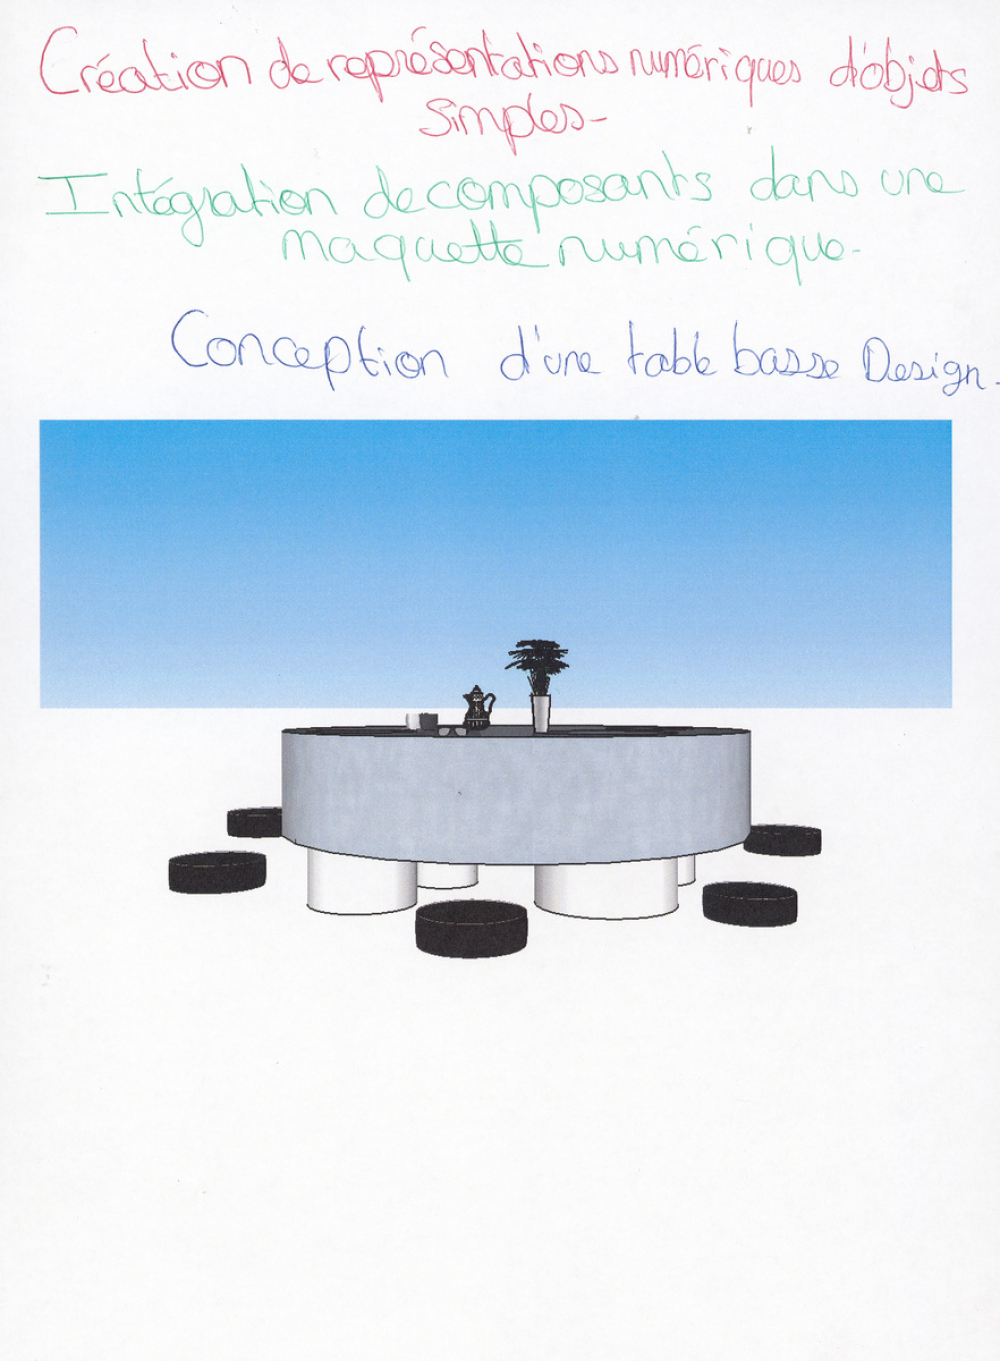 Création de représentations numériques d'objets
simples-
Intégration de composants dans une
maquette numérique-
Conception d'une table basse Design-